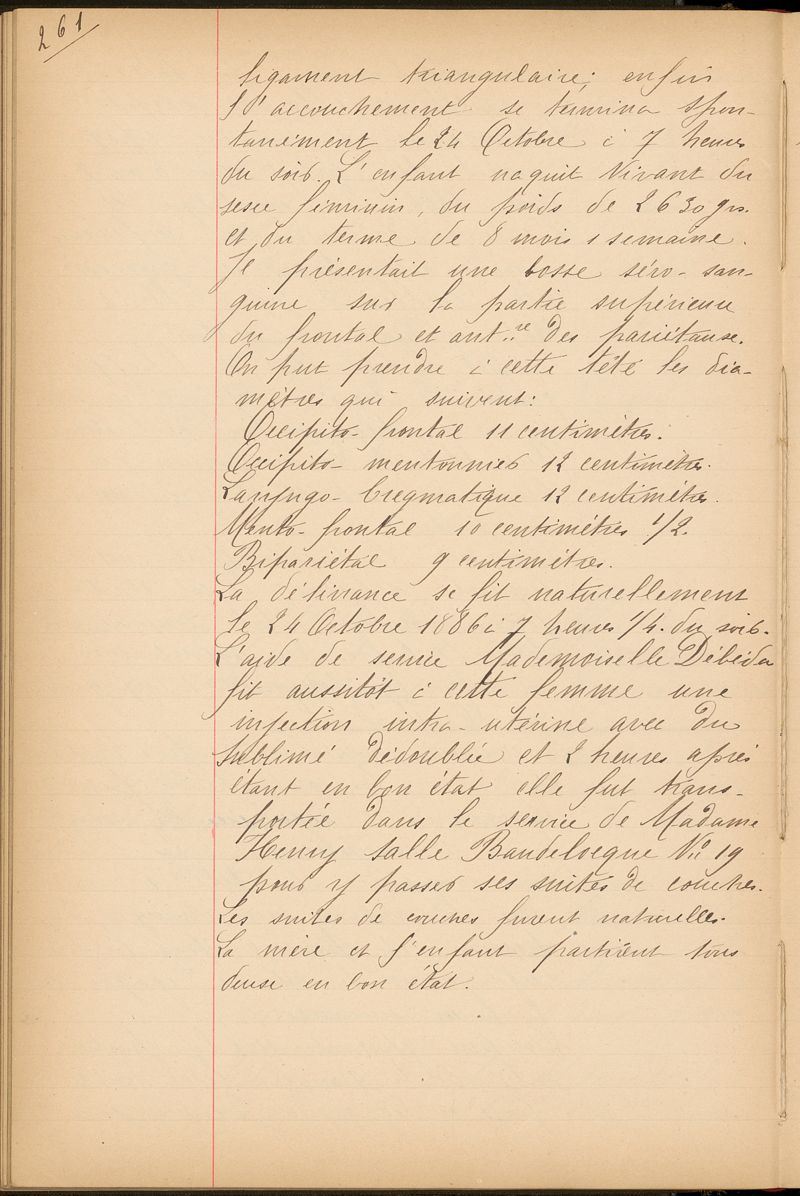 261
ligament triangulaire; enfin
l'accouchement se termina spon-
tanément le 24 Octobre à 7 heures
du soir. L'enfant naquit vivant du
sexe féminin, du poids de 2630 grs.
et du terme de 8 mois 1 semaine.
Il présentait une bosse séro-san-
guine sur la partie supérieure
du frontal et antre des pariétaux.
On put prendre à cette tête les dia-
mètres qui suivent:
Occipito-frontal 11 centimètres.
Occipito-mentonnier 12 centimètres.
Laryngo-bregmatique 12 centimètres.
Mento-frontal 10 centimètres 1/2.
Bipariétal 9 centimètres.
La délivrance se fit naturellement
le 24 Octobre 1886 à 7 heures 1/4. du soir.
L'aide de service Mademoiselle
fit aussitôt à cette femme une
injection intra-utérine avec du
sublimé dédoublée et 2 heures après
étant en bon état elle fut trans-
portée dans le service de Madame
Henry salle Baudelocque No 19
pour y passer ses suites de couches.
Les suites de couches furent naturelles.
La mère et l'enfant partirent tous
deux en bon état.